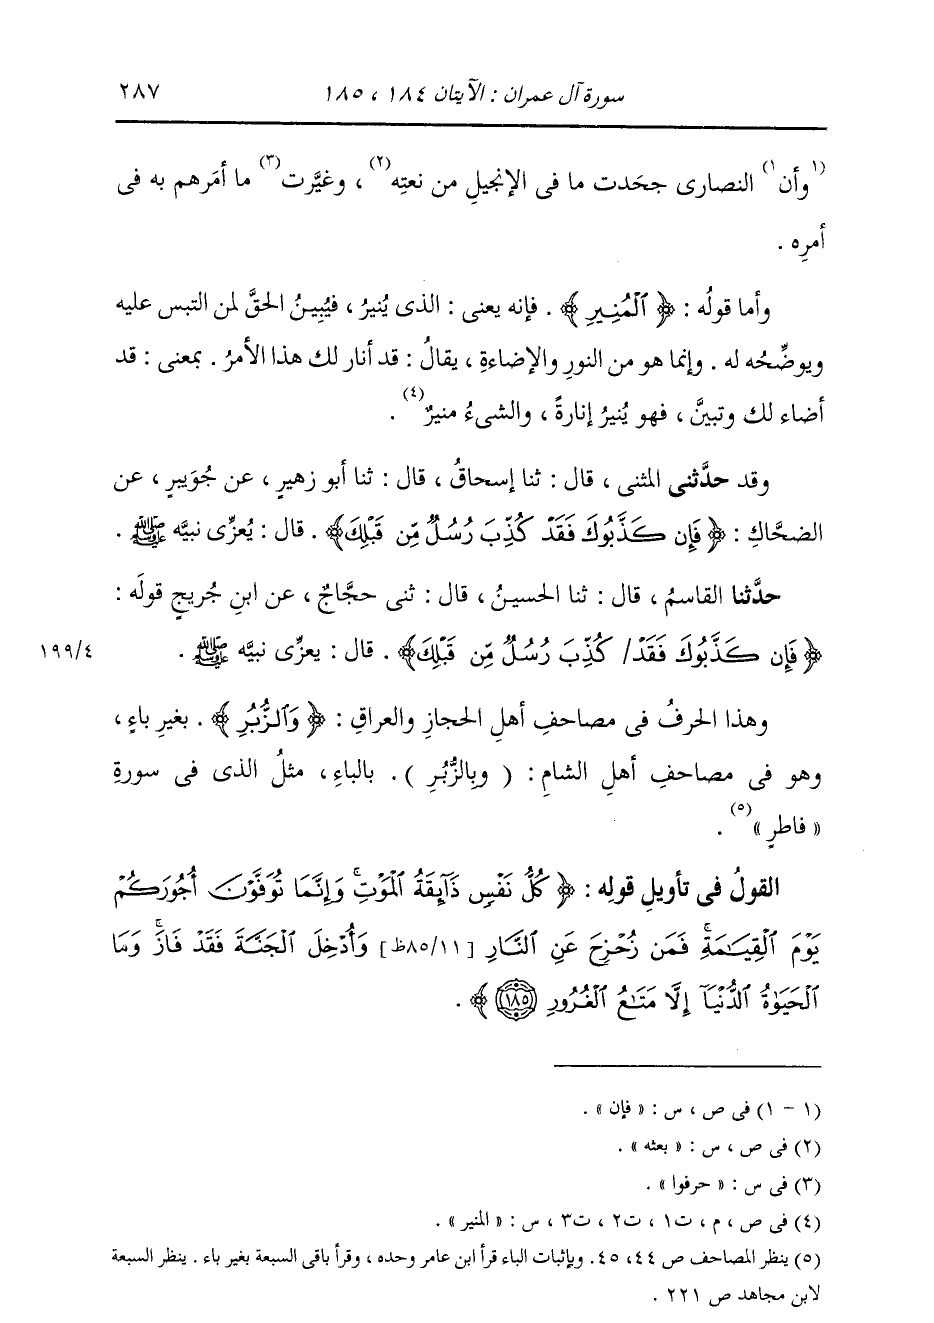 سورة آل عمران : الآيتان ١٨٤ ، ١٨٥ ٢٨٧
(١وأن١) النصارى جحَدت ما فى الإنجيلِ من نعتِه(٢) ، وغيَّرت(٣) ما أمَرهم به فى
أمرِه .
وأما قولُه : ﴿ ٱلْمُنِيرِ ﴾ . فإنه يعنى : الذى يُنيرُ ، فيُبِينُ الحقَّ لمن التبس عليه
ويوضِّحُه له . وإنما هو من النورِ والإضاءةِ ، يقالُ : قد أنار لك هذا الأمرُ . بمعنى : قد
أضاء لك وتبينَّ ، فهو يُنيرُ إنارةً ، والشىءُ منيرٌ(٤) .
وقد حدَّثنى المثنى ، قال : ثنا إسحاقُ ، قال : ثنا أبو زهيرٍ ، عن جُوَيبرٍ ، عن
الضحَّاكِ : ﴿ فَإِن كَذَّبُوكَ فَقَدْ كُذِّبَ رُسُلٌ مِّن قَبْلِكَ ﴾ . قال : يُعزِّى نبيَّه ﷺ .
حدَّثنا القاسمُ ، قال : ثنا الحسينُ ، قال : ثنى حجَّاجٌ ، عن ابنِ جُريجٍ قولَه :
﴿ فَإِن كَذَّبُوكَ فَقَدْ / كُذِّبَ رُسُلٌ مِّن قَبْلِكَ ﴾ . قال : يعزِّى نبيَّه ﷺ . ١٩٩/٤
وهذا الحرفُ فى مصاحفِ أهلِ الحجازِ والعراقِ : ﴿ وَٱلزُّبُرِ ﴾ . بغيرِ باءٍ ،
وهو فى مصاحفِ أهلِ الشامِ : ( وبِالزُّبُرِ ) . بالباءِ ، مثلُ الذى فى سورةِ
« فاطرٍ »(٥) .
القولُ فى تأويلِ قولِه : ﴿ كُلُّ نَفْسٍ ذَآئِقَةُ ٱلْمَوْتِۗ وَإِنَّمَا تُوَفَّوْنَ أُجُورَكُمْ
يَوْمَ ٱلْقِيَٰمَةِۖ فَمَن زُحْزِحَ عَنِ ٱلنَّارِ [١١/٨٥ظ] وَأُدْخِلَ ٱلْجَنَّةَ فَقَدْ فَازَۗ وَمَا
ٱلْحَيَوٰةُ ٱلدُّنْيَآ إِلَّا مَتَٰعُ ٱلْغُرُورِ (١٨٥) ﴾ .
(١ - ١) فى ص ، س : « فإن » .
(٢) فى ص ، س : « بعثه » .
(٣) فى س : « حرفوا » .
(٤) فى ص ، م ، ت١ ، ت٢ ، ت٣ ، س : « المنير » .
(٥) ينظر المصاحف ص ٤٤، ٤٥. وبإثبات الباء قرأ ابن عامر وحده ، وقرأ باقى السبعة بغير باء . ينظر السبعة
لابن مجاهد ص ٢٢١ .